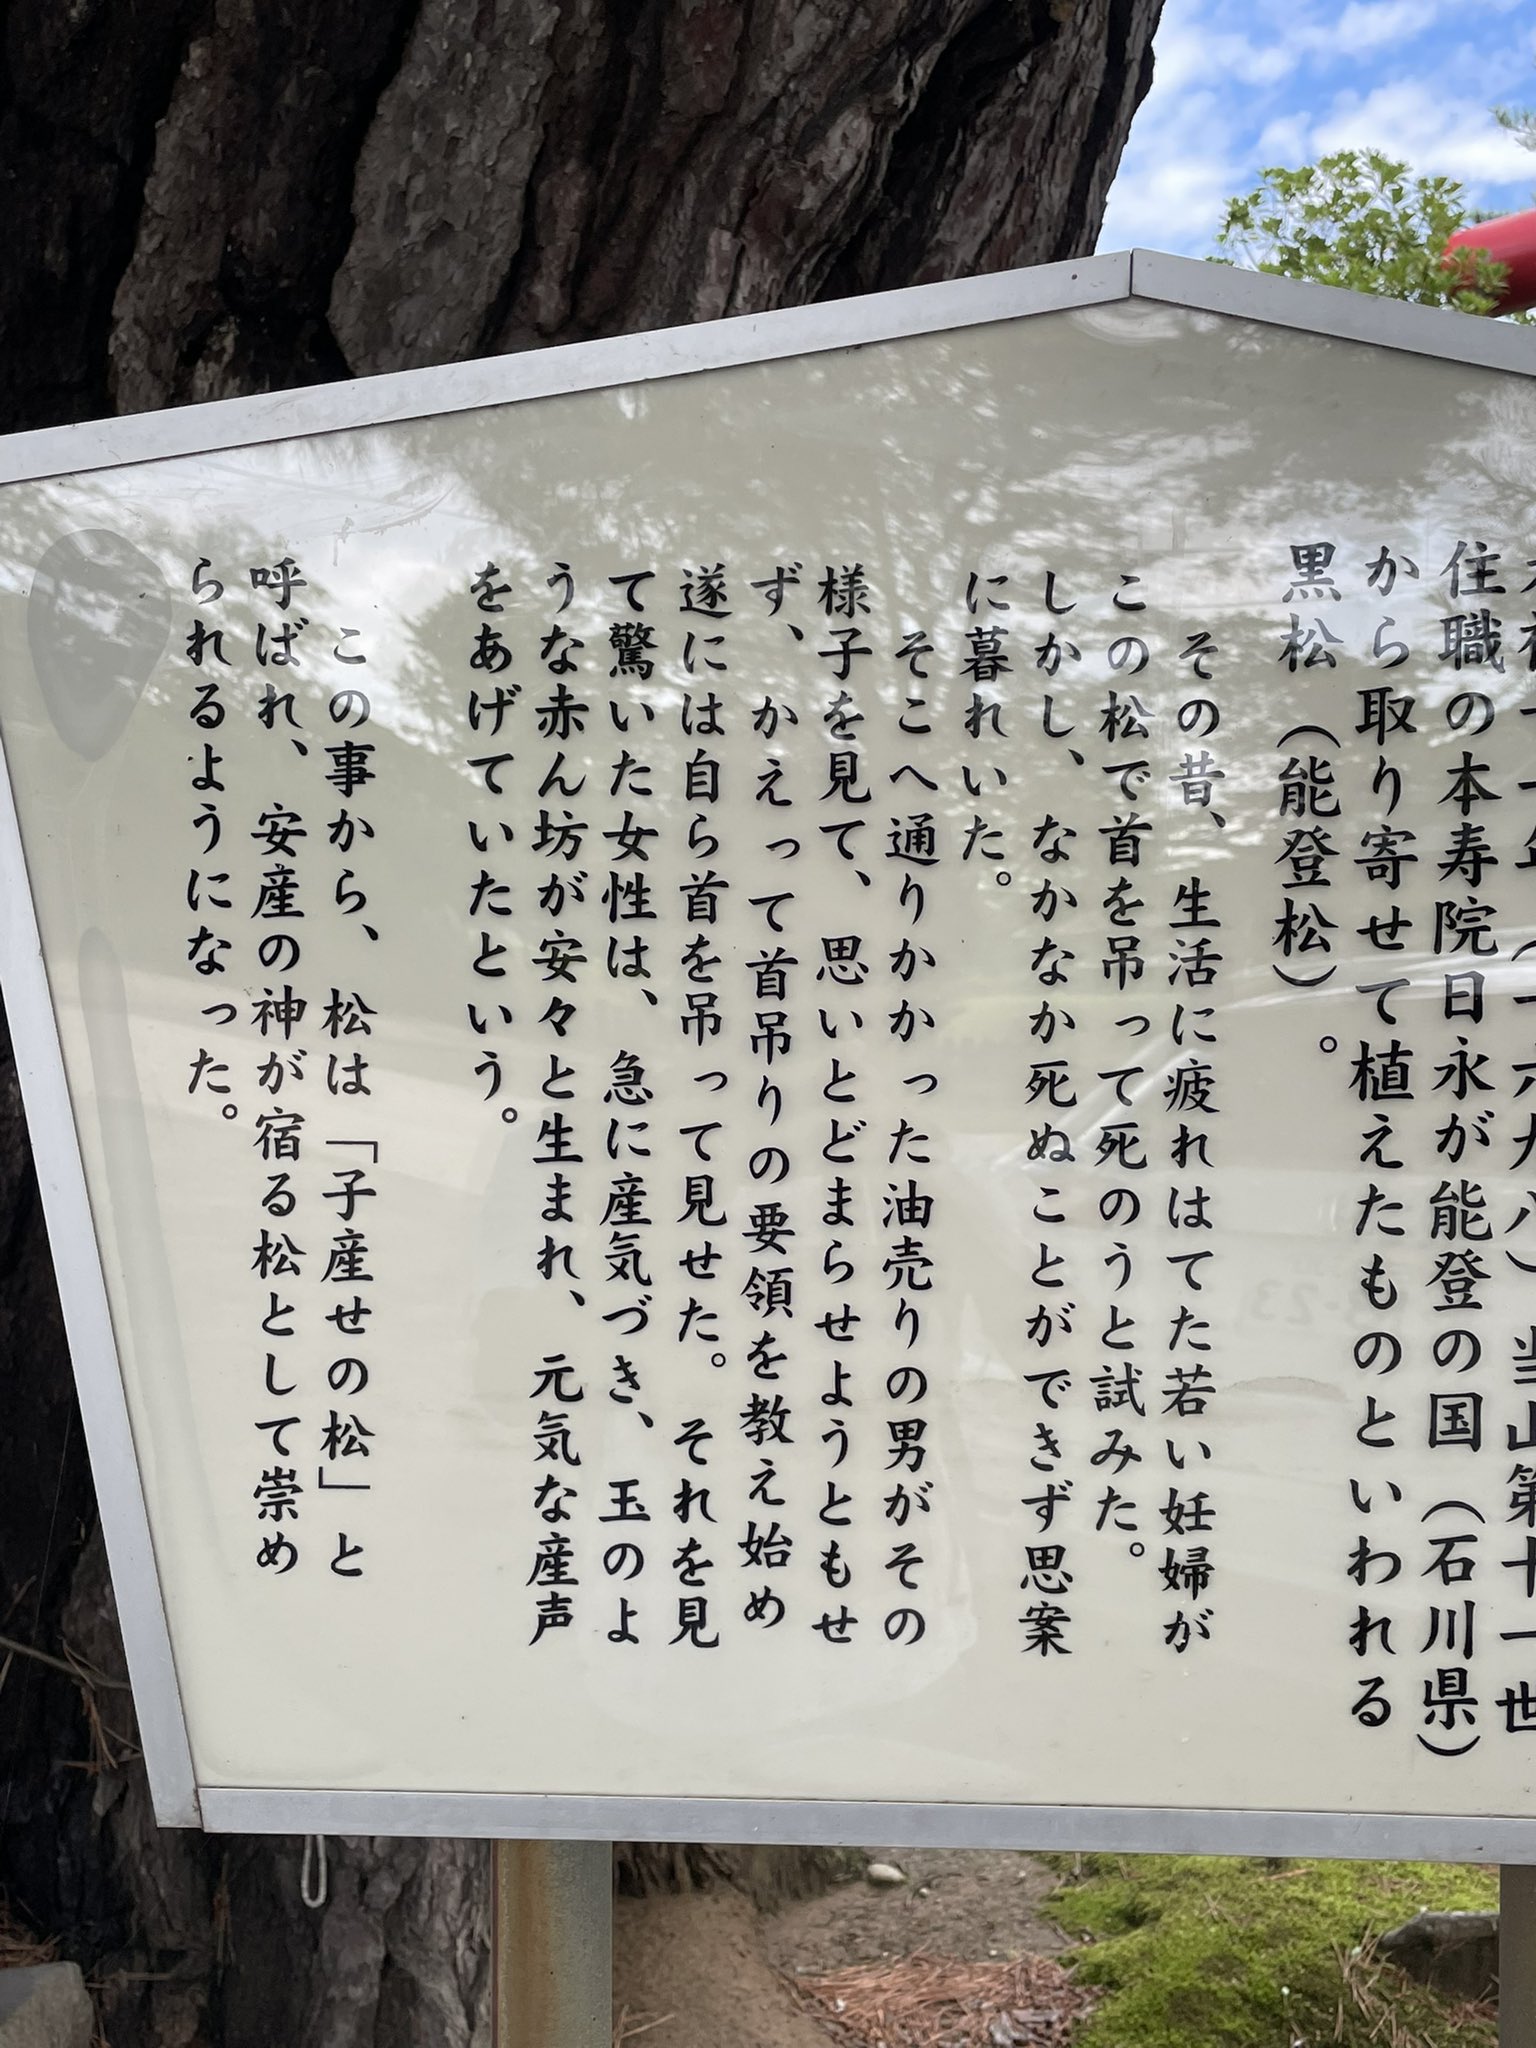 年(一六九八)当山第十一世
住職の本寿院日永が能登の国(石川県)
から取り寄せて植えたものといわれる
黒松(能登松)。
その昔、生活に疲れはてた若い妊婦が
この松で首を吊って死のうと試みた。
しかし、なかなか死ぬことができず思案
に暮れいた。
そこへ通りかかった油売りの男がその
様子を見て、思いとどまらせようともせ
ず、かえって首吊りの要領を教え始め
遂には自ら首を吊って見せた。それを見
て驚いた女性は、急に産気づき、玉のよ
うな赤ん坊が安々と生まれ、元気な産声
をあげていたという。
この事から、松は「子産せの松」と
呼ばれ、安産の神が宿る松として崇め
られるようになった。